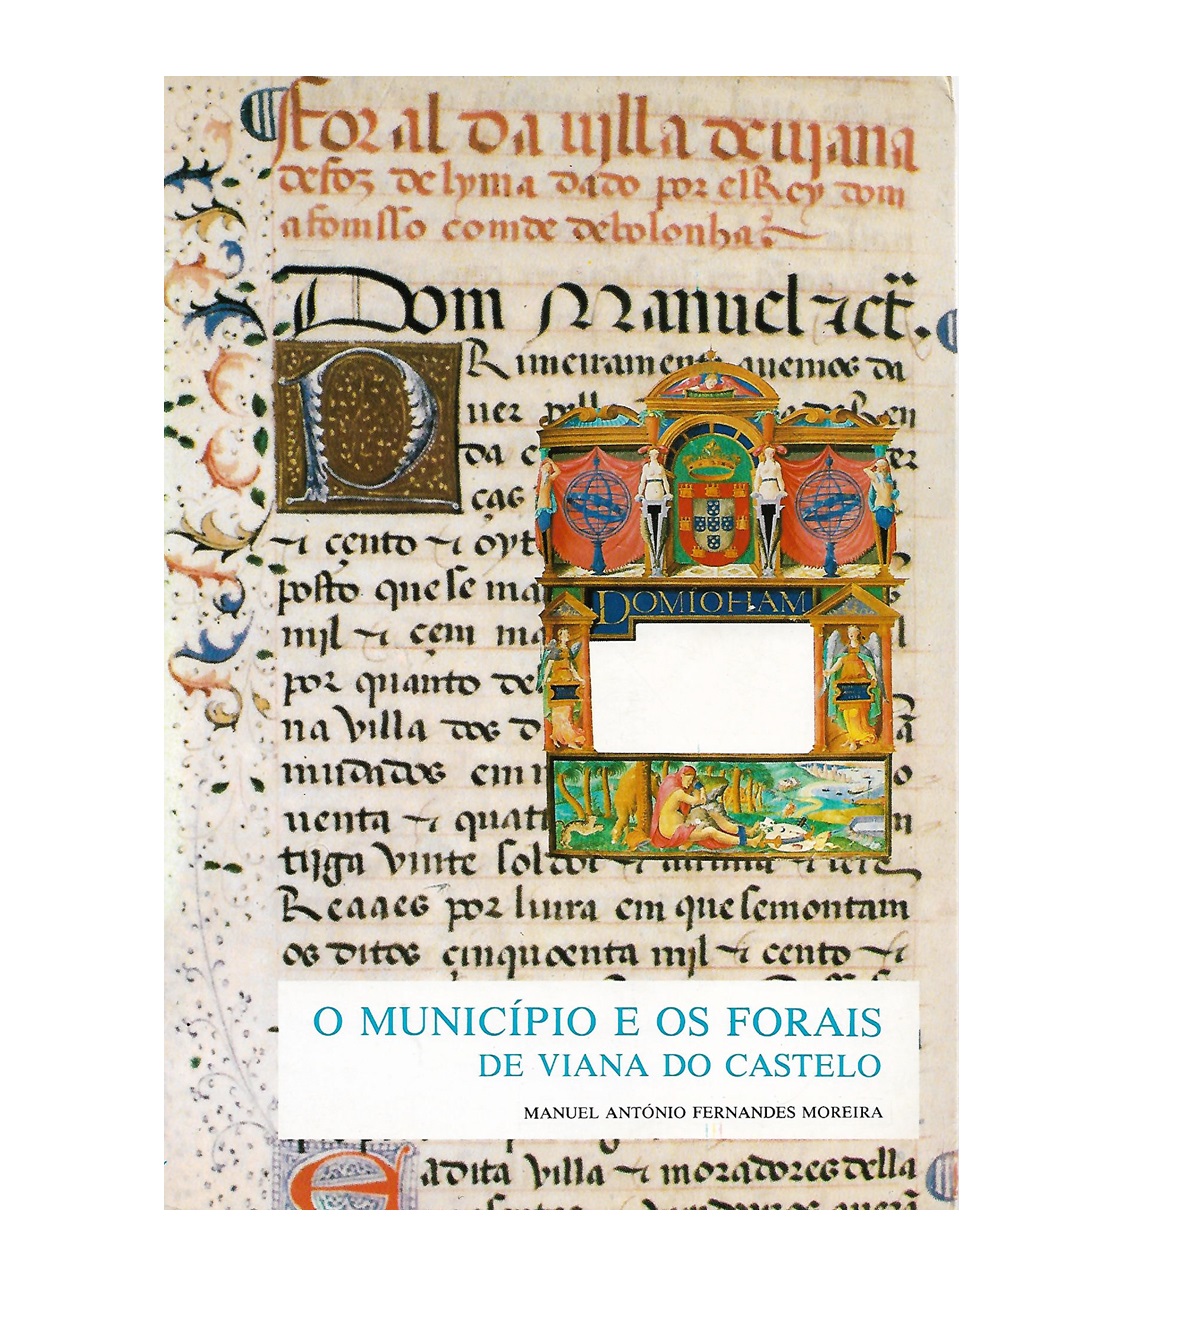 foral da villa de viana
de foz de lyma dado por elRey dom
afomsso comde de bolonha
Dom Manuel
PRimeiramente quemos da
uer pell
da c
ças
çento oyt
posto que se ma
mjl çem ma
por quanto de
na villa dos d
mudados em
uenta quat
tijga vinte soldos
Reaaes por liura em que se montam
os ditos çinquoenta mjl cento
DOMIOHAM
O MUNICÍPIO E OS FORAIS
DE VIANA DO CASTELO
MANUEL ANTÓNIO FERNANDES MOREIRA
adita villa moradores della